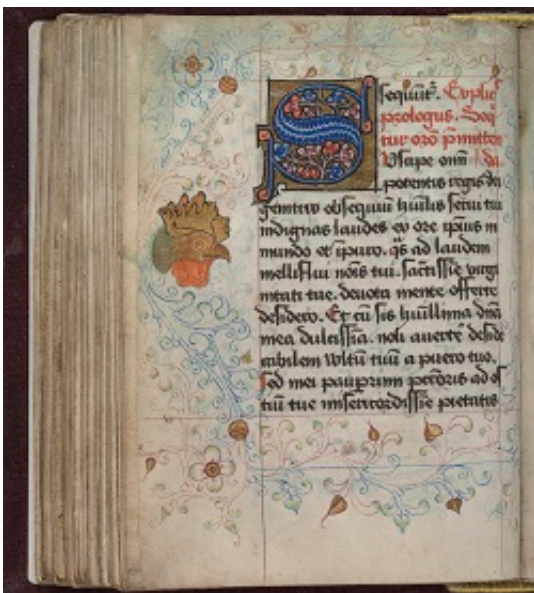 sequūt᷑. Explīt
prologus. Seq̄
tur oro p̄mittēs
SUscipe omī da
potentis regis dei
genitrix obsequiū hūilis serui tui
indignas laudes ex ore ip̄ius in
mundo et īpuro. q̄s ad laudem
melliflui nōis tui. sāctissīe virgi
nitati tue. deuota mente offerre
desidero. Et cū sis hūillima dn̄a
mea dulcissīa. noli auertē deside
rabilem vultū tuū a puero tuo.
sed mei paupꝛim peccōris ad os
tiū tue misericordissīe pietatis